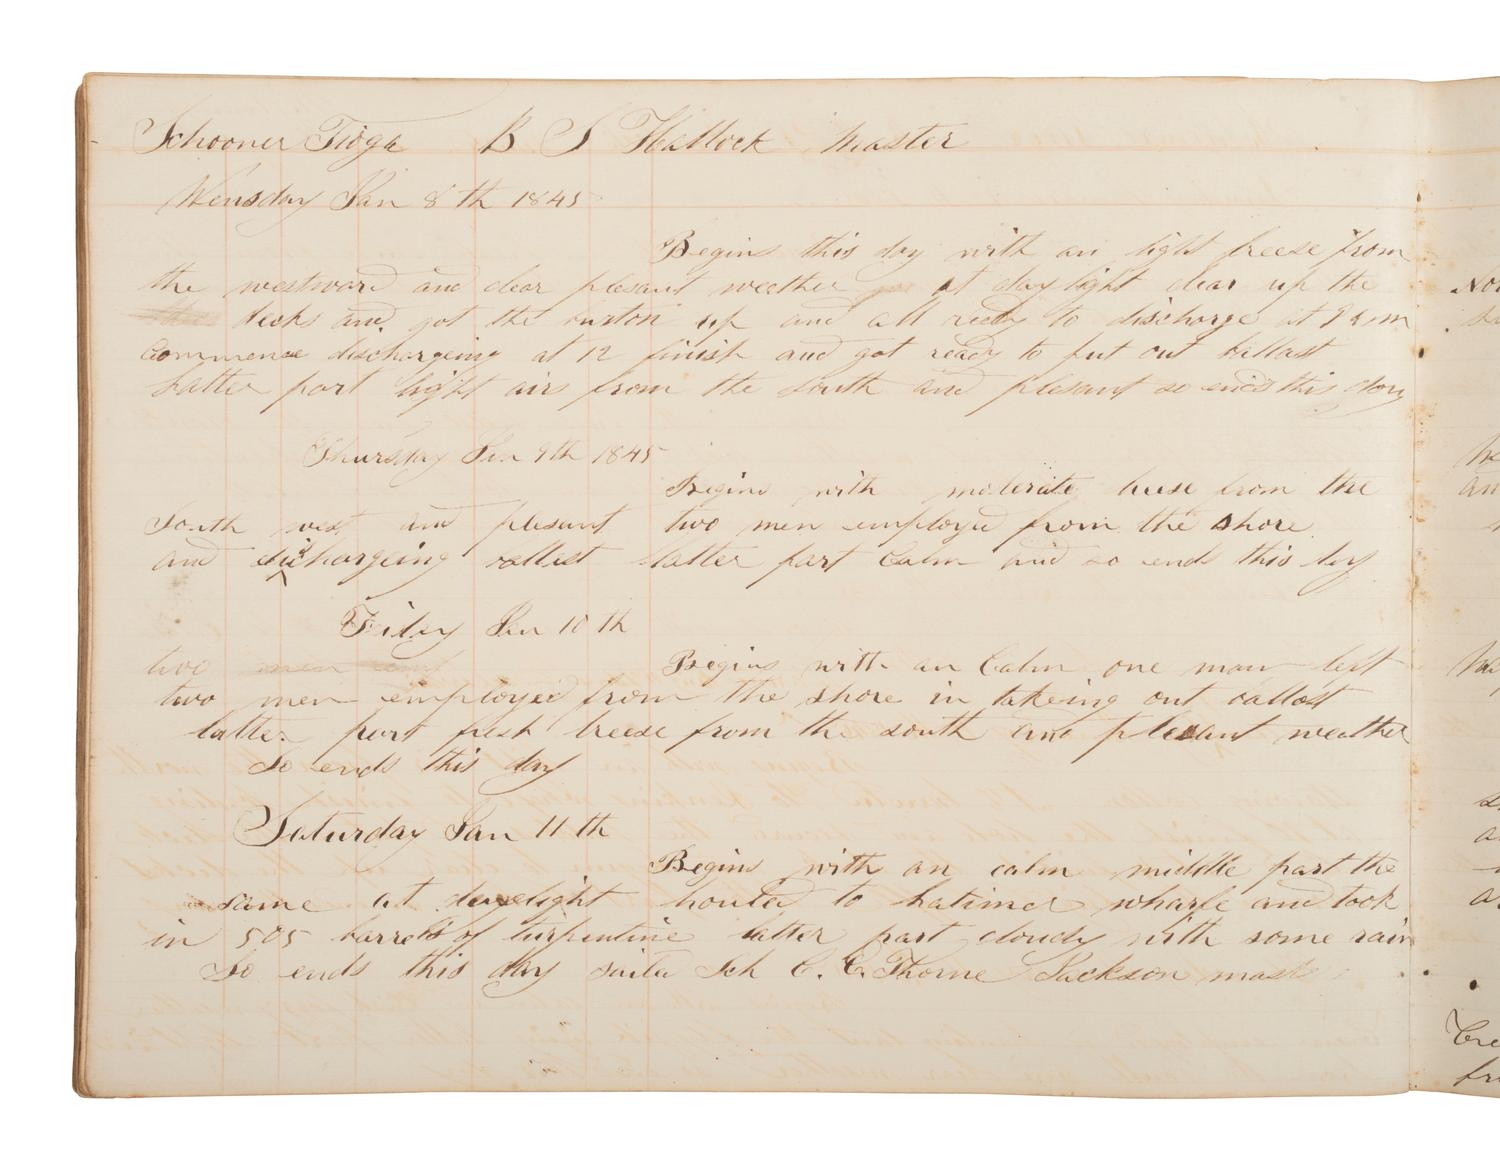 Schooner Tioga B S Hallock Master
Wensday Jan 8th 1845
Begins this day with an light breese from
the westward and clear plesant weether at day light clear up the
decks and got the burton up and all redy to discharge at 9 am
Commence dischargeing at 12 finish and got ready to put out ballast
Latter part light airs from the south and plesant so ends this day
Thursday Jan 9th 1845
Begins with moderate breese from the
South west and plesant two men employed from the shore
and dischargeing ballast latter part Calm and so ends this day
Friday Jan 10th
two men Begins with an Calm one man left
two men employed from the shore in takeing out ballast
latter part fresh breese from the south and plesant weather
So ends this day
Saturday Jan 11th
Begins with an calm middle part the
same at daylight houled to Latimer wharfe and took
in 505 barrels of turpintine latter part cloudy with some rain
So ends this day sailed Sch C. C. Thorne Jackson mast
Nov
an
a
a
fr